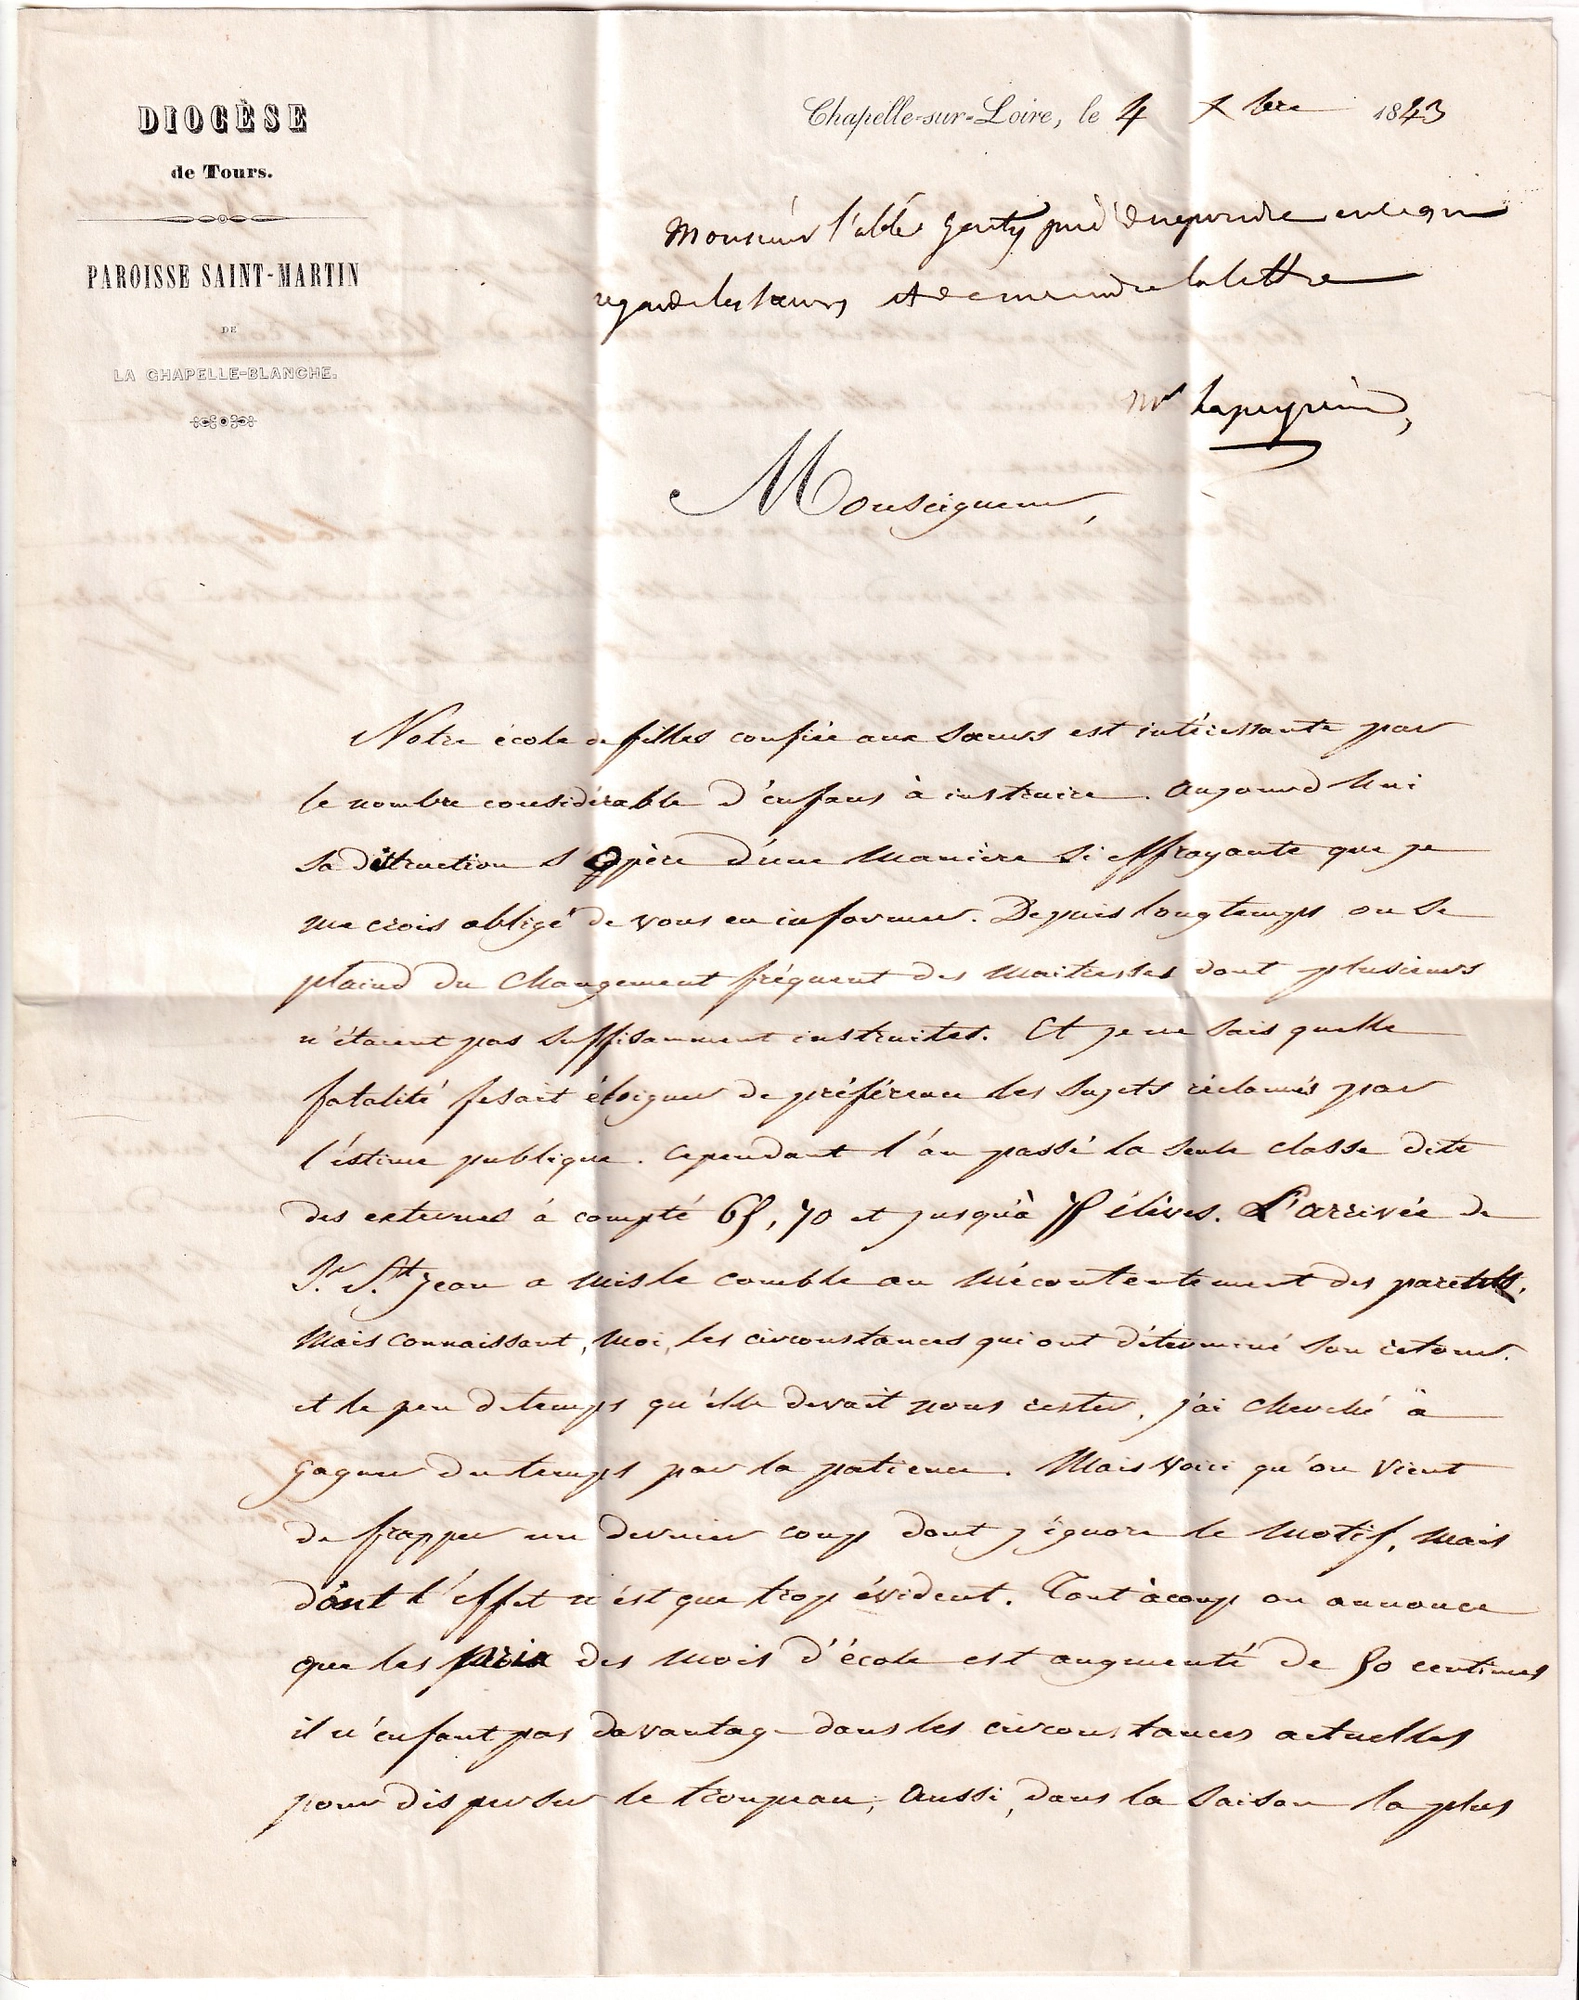 DIOCÈSE
de Tours.
PAROISSE SAINT-MARTIN
DE
LA CHAPELLE-BLANCHE.
Chapelle-sur-Loire, le 4 Xbre 1843
Monsieur l'abbé Genty prié de repondre en ce qui
regarde les sœurs et de me rendre la lettre
Monseigneur,
Notre école de filles confiée aux Sœurs est intéressante par
le nombre considérable d'enfans à instruire. Aujourd'hui
sa destruction s'opère d'une manière si effrayante que je
me crois obligé de vous en informer. Depuis longtemps on se
plaind du changement fréquent des maitresses dont plusieurs
n'étaient pas suffisamment instruites. Et je ne sais quelle
fatalité fesait éloigner de préférence les sujets réclamés par
l'estime publique. Cependant l'an passé la seule classe dite
des externes à compté 65, 70 et jusqu'à 75 élèves. L'arrivée de
Sr. St. Jean a mis le comble au mécontentement des parents.
Mais connaissant, moi, les circonstances qui ont déterminé son retour.
et le peu de temps qu'elle devait nous rester, j'ai cherché à
gagner du temps par la patience. Mais voici qu'on vient
de frapper un dernier coup dont j'ignore le motif, mais
dont l'effet n'est que trop évident. Tout à coup on annonce
que les prix des mois d'école est augmenté de 50 centimes
il n'en faut pas davantage dans les circonstances actuelles
pour disperser le troupeau; Aussi, dans la saison la plus